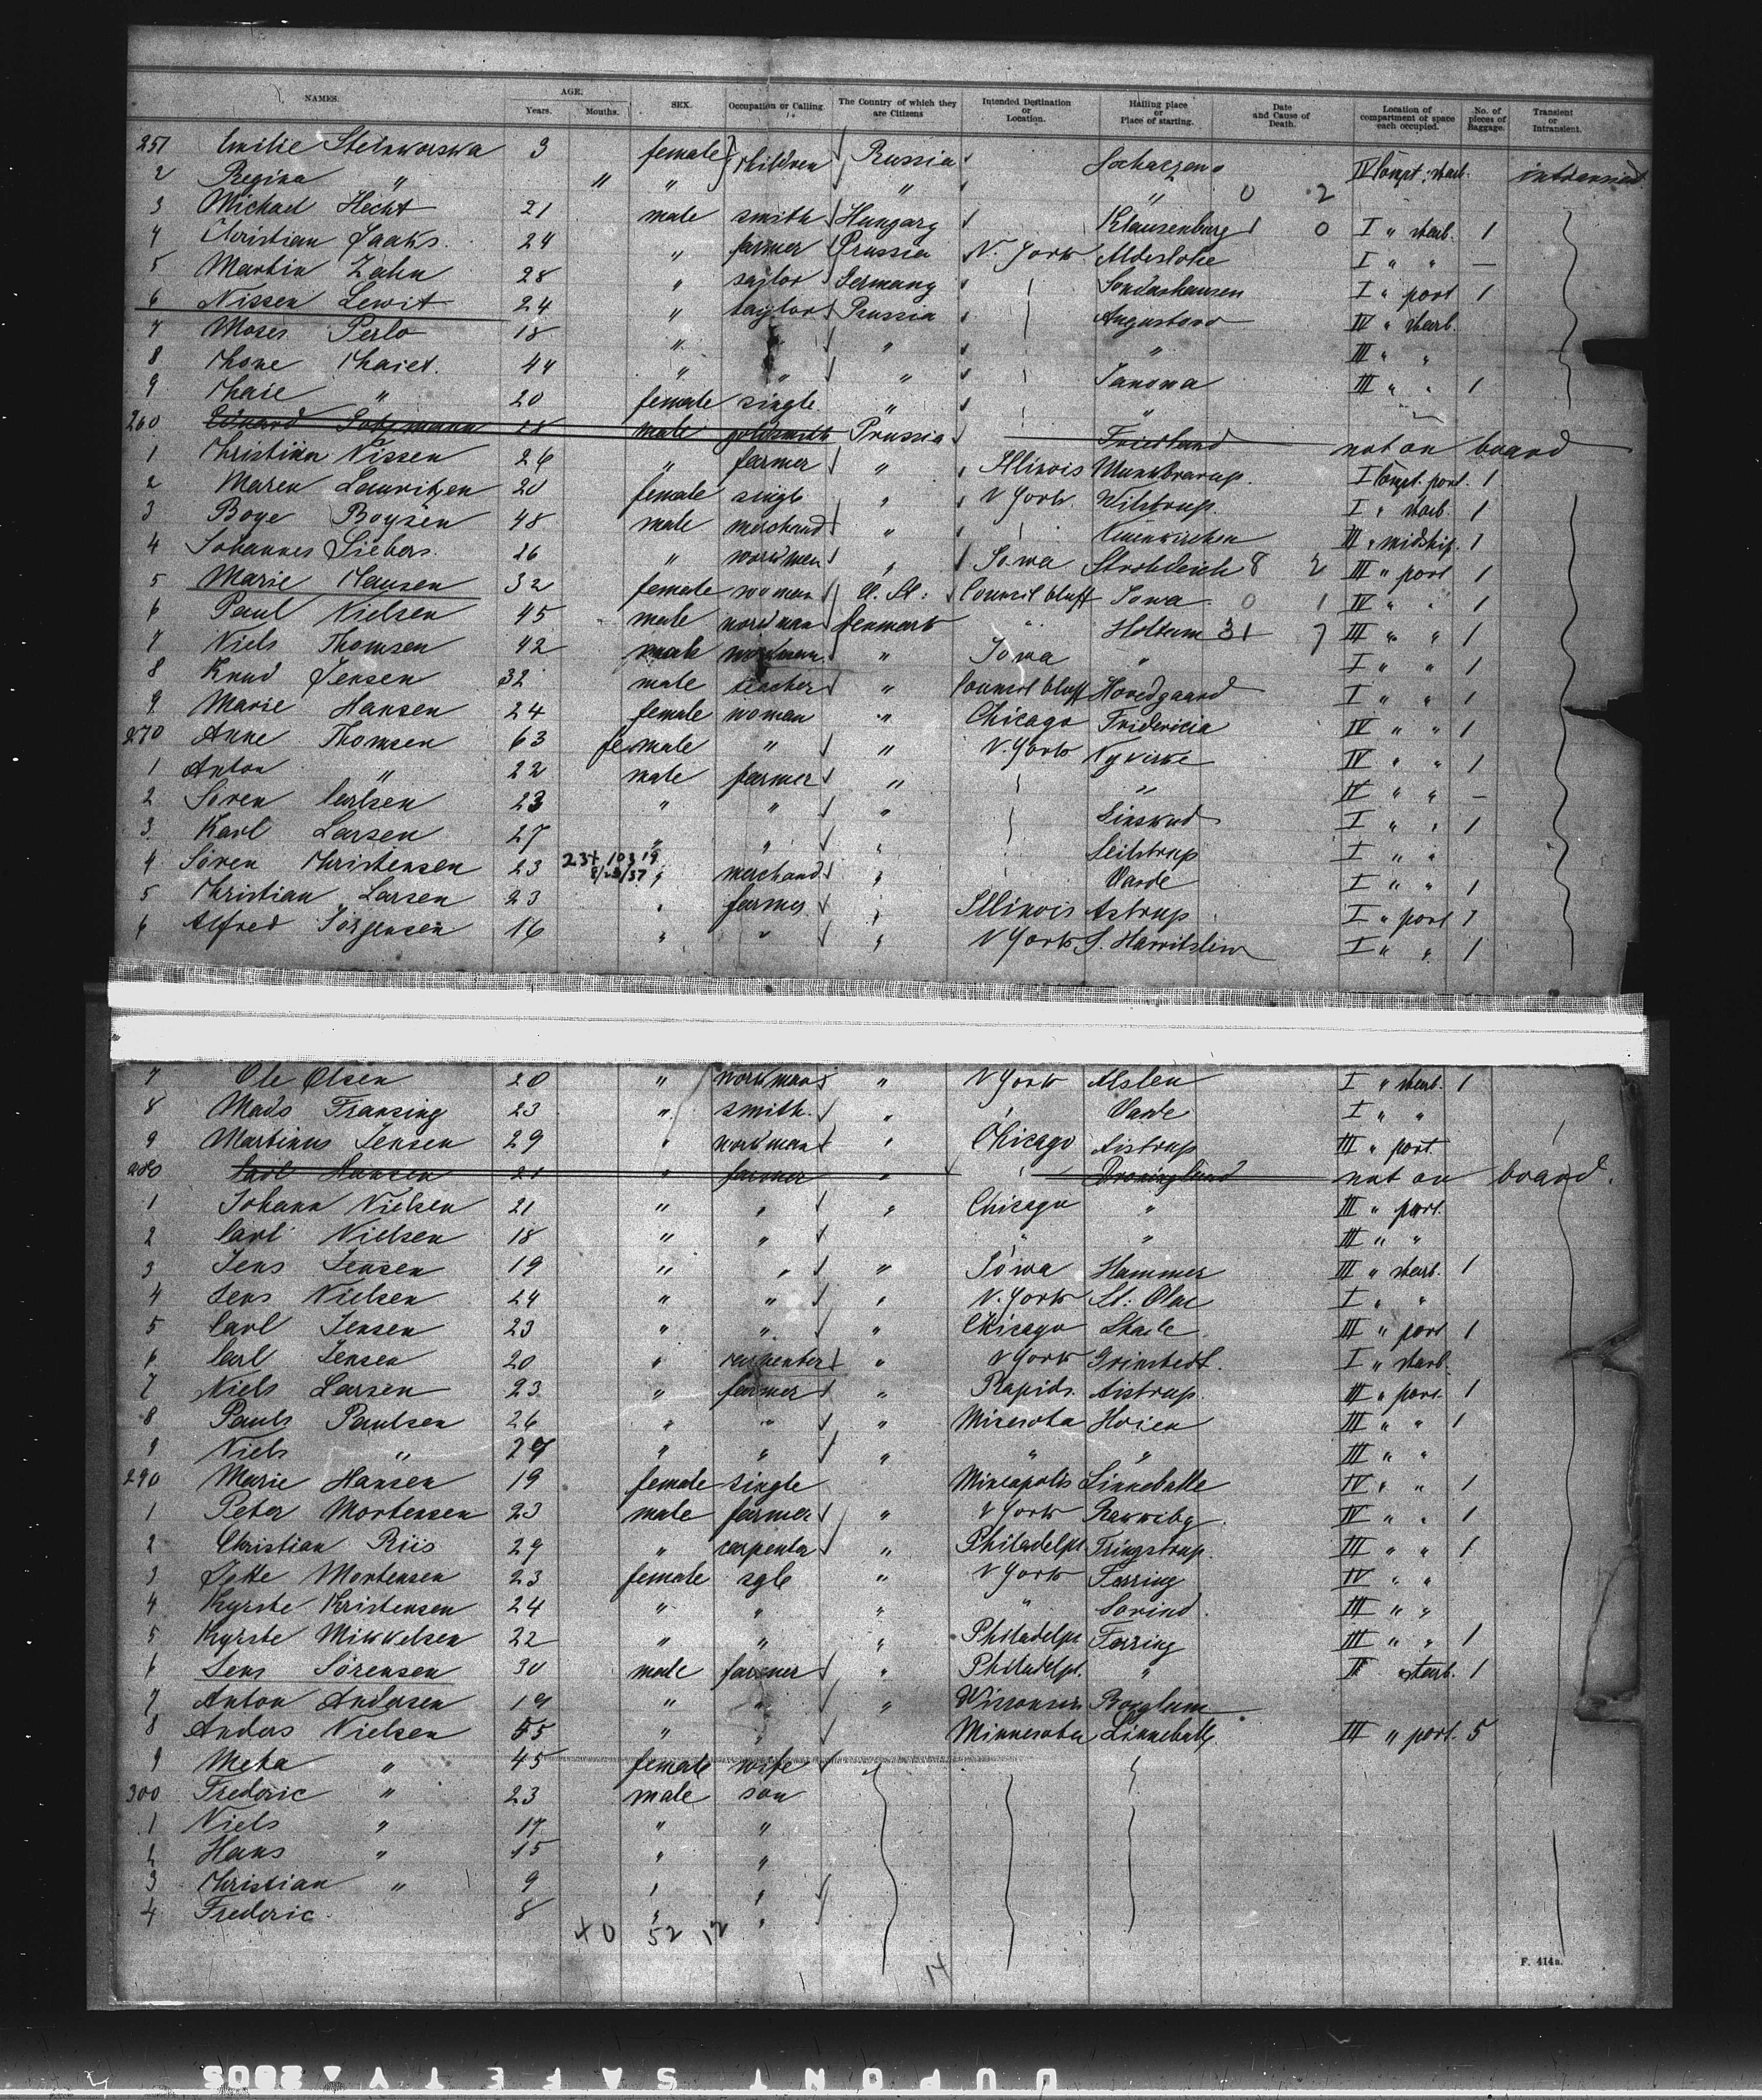 NAMES. AGE. Years. Months. SEX. Occupation or Calling. The Country of which they are Citizens Intended Destination or Location. Hailing place or Place of starting. Date and Cause of Death. Location of compartment or space each occupied. No. of pieces of Baggage. Transient or Intransient.
251 Emilie 3 female children Russia IV Compt. starb. intransient
2 Regina " " " " " 0 2
3 Michael Hecht 21 male smith Hungary Klausenburg 0 I " starb. 1
4 Christian Jaaks 24 " farmer Prussia N. York Aldeslohe I " " —
5 Martin Zahn 28 " Germany Sondashausen I " port 1
6 Nissen Lewit 24 " taylor Russia Augustowo IV " starb.
7 Moses Perlo 18 " " " " III " "
8 Chone Chaiet. 44 " " " Janowa III " " 1
9 Chaie " 20 female single " "
260 Eduard male goldsmith Prussia Friedland not on board
1 Christian Nissen 26 " farmer " Illinois Munkbrarup. I Compt. port. 1
2 Maren Lauritzen 20 female single " N York. Wilstrup. I " starb. 1
3 Boye Boysen 48 male merchand " III " midship. 1
4 Johannes Siebers. 26 " workmen " Iowa Strohdeich 8 2 III " port 1
5 Marie Hansen 32 female woman U. St: Council bluff Iowa 0 1 IV " " 1
6 Paul Nielsen 45 male workman Denmark " Holtum 31 7 III " " 1
7 Niels Thomsen 42 male workman " Iowa " I " " 1
8 Knud Jensen 32 male teacher " Council bluff Hovedgaard I " " 1
9 Marie Hansen 24 female woman " Chicago Fridericia IV " " 1
270 Anne Thomsen 63 female " " N. York Nyvirke IV " " 1
1 Anton " 22 male farmer " " IV " " —
2 Soren Carlsen 23 " " " I " " 1
3 Karl Larsen 27 " " " Seilstrup I " "
4 Sören Christensen 23 23+ 10319 8/23/37 " merchand " Varde I " " 1
5 Christian Larsen 23 " farmer " Illinois Astrup I " port 1
6 Alfred Jörgensen 16 " " " N York S. Harritslew I " " 1
7 Ole Olsen 20 " workman " N York Alslen I " starb. 1
8 Mads Fransing 23 " smith. " Varde I " "
9 Martinus Jensen 29 " workman " Chicago Aistrup III " port.
280 Carl Hansen 21 " farmer " Droninglund not on board.
1 Johann Nielsen 21 " " " Chicago " III " port.
2 Carl Nielsen 18 " " " " III " "
3 Jens Jensen 19 " " " Iowa Hammer III " starb. 1
4 Jens Nielsen 24 " " " N. York St: Olae I " "
5 Carl Jensen 23 " " " Chicago III " port 1
6 Carl Jensen 20 " carpenter " N York Grinstedt. I " starb.
7 Niels Larsen 23 " farmer " Rapids. Aistrup. III " port. 1
8 Pauls Paulsen 26 " " " Minesota Hoien III " " 1
9 Niels " 29 " " " " " III " "
290 Marie Hansen 19 female single Mineapolis Linneballe IV " " 1
1 Peter Mortensen 23 male farmer " N York IV " " 1
2 Christian Riis 29 " carpenter " Philadelph Tringstrup. III " " 1
3 Jette Mortensen 23 female sgle " N York Ferring IV " "
4 Kyrste Kristensen 24 " " " " Sorind. III " "
5 Kyrste Mikkelsen 22 " " " Philadelph Ferring III " " 1
6 Jens Sörensen 30 male farmer " Philadelph. " II starb. 1
7 Anton Andersen 19 " " " Wisconsin Borglum
8 Anders Nielsen 55 " " Minnesota Linneballe III " port. 5
9 Meta " 45 female wife
300 Frederic " 23 male son
1 Niels " 17 " "
2 Hans " 15 " "
3 Christian " 9 " "
4 Frederic 8 " "
+0 52 12
14
F. 414a.
DUPONT SAFETY 2805